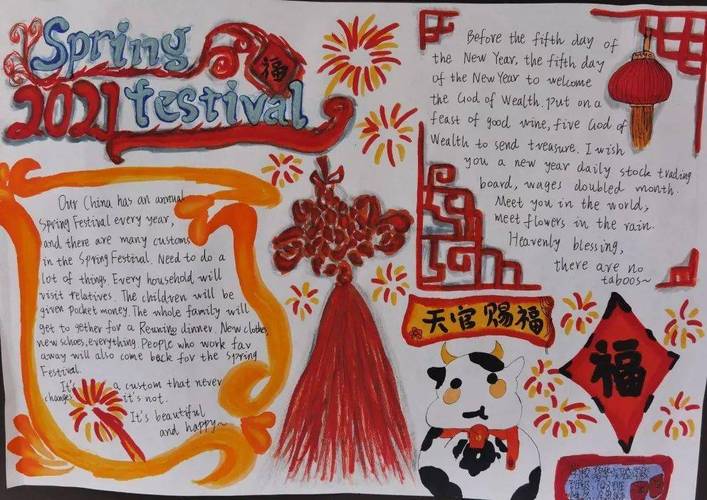 Spring
福
2021 festival
Our China has an annual
Spring Festival every year,
and there are many customs
in the Spring Festival. Need to do a
lot of things. Every household will
visit relatives. The children will be
given pocket money. The whole family will
get to gether for a Reunino dinner. New clothes,
new shoes, everything. People who work far
away will also come back for the Spring
Festival.
It's a custom that never
changes it's not.
It's beautiful
and happy~
Before the fifth day of
the New Year, the fifth day
of the New Year to welcome
the God of Wealth. Put on a
feast of good wine, five God of
Wealth to send treasure. I wish
you a new year daily stock trading
board, wages doubled month.
Meet you in the world,
meet flowers in the rain.
Heavenly blessing,
there are no
taboos~
天官赐福
福